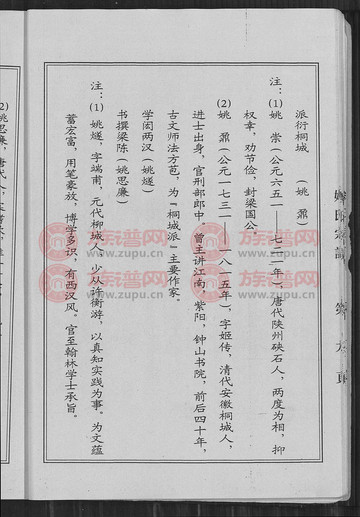 派衍桐城　　(姚　鼐)
注：(1) 姚　崇(公元六五一——七二一年)，唐代陕州硖石人，两度为相，抑
权幸，劝节俭，封梁国公。
(2) 姚　鼐(公元一七三一——一八一五年)，字姬传，清代安徽桐城人，
进士出身，官刑部郎中，曾主讲江南，紫阳，钟山书院，前后四十年，
古文师法方苞，为「桐城派」主要作家。
学闳两汉(姚燧)
书撰梁陈(姚思廉)
注：(1) 姚燧，字端甫，元代柳城人。少从许衡游，以真知实践为事。为文蕴
蓄宏富，用笔豪放，博学多识，有西汉风。官至翰林学士承旨。
(2)姚思廉，唐代人
族谱网
www.zupu.cn
族谱网
www.zupu.cn
族谱网
www.zupu.cn